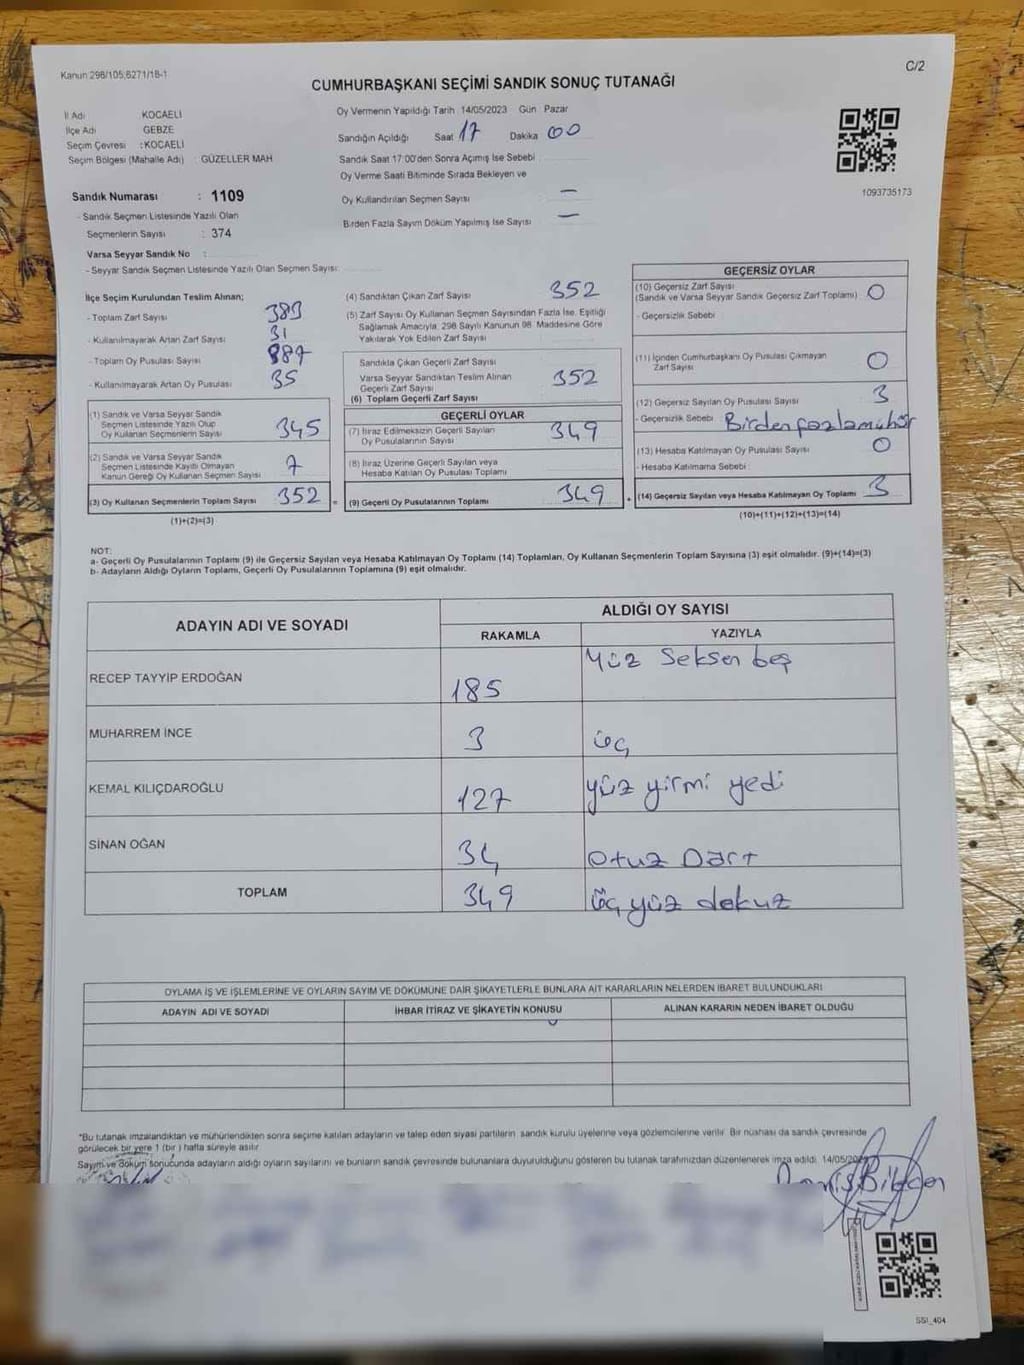 Kanun 298/105,6271/18-1
C/2
CUMHURBAŞKANI SEÇİMİ SANDIK SONUÇ TUTANAĞI
İl Adı KOCAELİ
İlçe Adı GEBZE
Seçim Çevresi : KOCAELİ
Seçim Bölgesi (Mahalle Adı) GÜZELLER MAH
Sandık Numarası : 1109
- Sandık Seçmen Listesinde Yazılı Olan
Seçmenlerin Sayısı : 374
Varsa Seyyar Sandık No :
- Seyyar Sandık Seçmen Listesinde Yazılı Olan Seçmen Sayısı:
Oy Vermenin Yapıldığı Tarih 14/05/2023 Gün Pazar
Sandığın Açıldığı Saat 17 Dakika 00
Sandık Saat 17:00'den Sonra Açımış İse Sebebi
Oy Verme Saati Bitiminde Sırada Bekleyen ve
Oy Kullandırılan Seçmen Sayısı —
Birden Fazla Sayım Döküm Yapılmış İse Sayısı —
1093735173
İlçe Seçim Kurulundan Teslim Alınan;
- Toplam Zarf Sayısı 383
- Kullanılmayarak Artan Zarf Sayısı 31
- Toplam Oy Pusulası Sayısı 887
- Kullanılmayarak Artan Oy Pusulası 35
(1) Sandık ve Varsa Seyyar Sandık
Seçmen Listesinde Yazılı Olup
Oy Kullanan Seçmenlerin Sayısı 345
(2) Sandık ve Varsa Seyyar Sandık
Seçmen Listesinde Kayıtlı Olmayan
Kanun Gereği Oy Kullanan Seçmen Sayısı 7
(3) Oy Kullanan Seçmenlerin Toplam Sayısı 352 =
(1)+(2)=(3)
(4) Sandıktan Çıkan Zarf Sayısı 352
(5) Zarf Sayısı Oy Kullanan Seçmen Sayısından Fazla İse, Eşitliği
Sağlamak Amacıyla, 298 Sayılı Kanunun 98. Maddesine Göre
Yakılarak Yok Edilen Zarf Sayısı
Sandıkla Çıkan Geçerli Zarf Sayısı
Varsa Seyyar Sandıktan Teslim Alınan
Geçerli Zarf Sayısı
(6) Toplam Geçerli Zarf Sayısı 352
GEÇERLİ OYLAR
(7) İtiraz Edilmeksizin Geçerli Sayılan
Oy Pusulalarının Sayısı 349
(8) İtiraz Üzerine Geçerli Sayılan veya
Hesaba Katılan Oy Pusulası Toplamı
(9) Geçerli Oy Pusulalarının Toplamı 349 +
GEÇERSİZ OYLAR
(10) Geçersiz Zarf Sayısı
(Sandık ve Varsa Seyyar Sandık Geçersiz Zarf Toplamı) 0
- Geçersizlik Sebebi
(11) İçinden Cumhurbaşkanı Oy Pusulası Çıkmayan
Zarf Sayısı 0
(12) Geçersiz Sayılan Oy Pusulası Sayısı 3
- Geçersizlik Sebebi : Birden fazla mühür
(13) Hesaba Katılmayan Oy Pusulası Sayısı 0
- Hesaba Katılmama Sebebi
(14) Geçersiz Sayılan veya Hesaba Katılmayan Oy Toplamı 3
(10)+(11)+(12)+(13)=(14)
NOT:
a- Geçerli Oy Pusulalarının Toplamı (9) ile Geçersiz Sayılan veya Hesaba Katılmayan Oy Toplamı (14) Toplamları, Oy Kullanan Seçmenlerin Toplam Sayısına (3) eşit olmalıdır. (9)+(14)=(3)
b- Adayların Aldığı Oyların Toplamı, Geçerli Oy Pusulalarının Toplamına (9) eşit olmalıdır.
ADAYIN ADI VE SOYADI ALDIĞI OY SAYISI
RAKAMLA YAZIYLA
RECEP TAYYİP ERDOĞAN 185 Yüz Seksen beş
MUHARREM İNCE 3 üç
KEMAL KILIÇDAROĞLU 127 yüz yirmi yedi
SİNAN OĞAN 34 Otuz Dört
TOPLAM 349 üç yüz dokuz
OYLAMA İŞ VE İŞLEMLERİNE VE OYLARIN SAYIM VE DÖKÜMÜNE DAİR ŞİKAYETLERLE BUNLARA AİT KARARLARIN NELERDEN İBARET BULUNDUKLARI
ADAYIN ADI VE SOYADI İHBAR İTİRAZ VE ŞİKAYETİN KONUSU ALINAN KARARIN NEDEN İBARET OLDUĞU
*Bu tutanak imzalandıktan ve mühürlendikten sonra seçime katılan adayların ve talep eden siyasi partilerin sandık kurulu üyelerine veya gözlemcilerine verilir. Bir nüshası da sandık çevresinde
görülecek bir yere 1 (bir) hafta süreyle asılır
Sayım ve döküm sonucunda adayların aldığı oyların sayılarını ve bunların sandık çevresinde bulunanlara duyurulduğunu gösteren bu tutanak tarafımızdan düzenlenerek imza edildi. 14/05/20
SSI_404